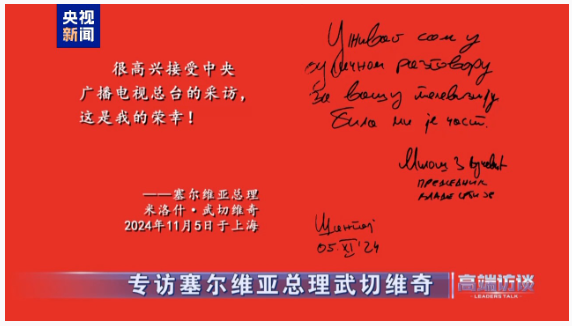 央视
新闻
很高兴接受中央
广播电视总台的采访，
这是我的荣幸！
——塞尔维亚总理
米洛什·武切维奇
2024年11月5日于上海
Уживао сам у
одличном разговору
за вашу телевизију
Била ми је част.
Милош
05. XI '24
专访塞尔维亚总理武切维奇
高端访谈
LEADERS TALK